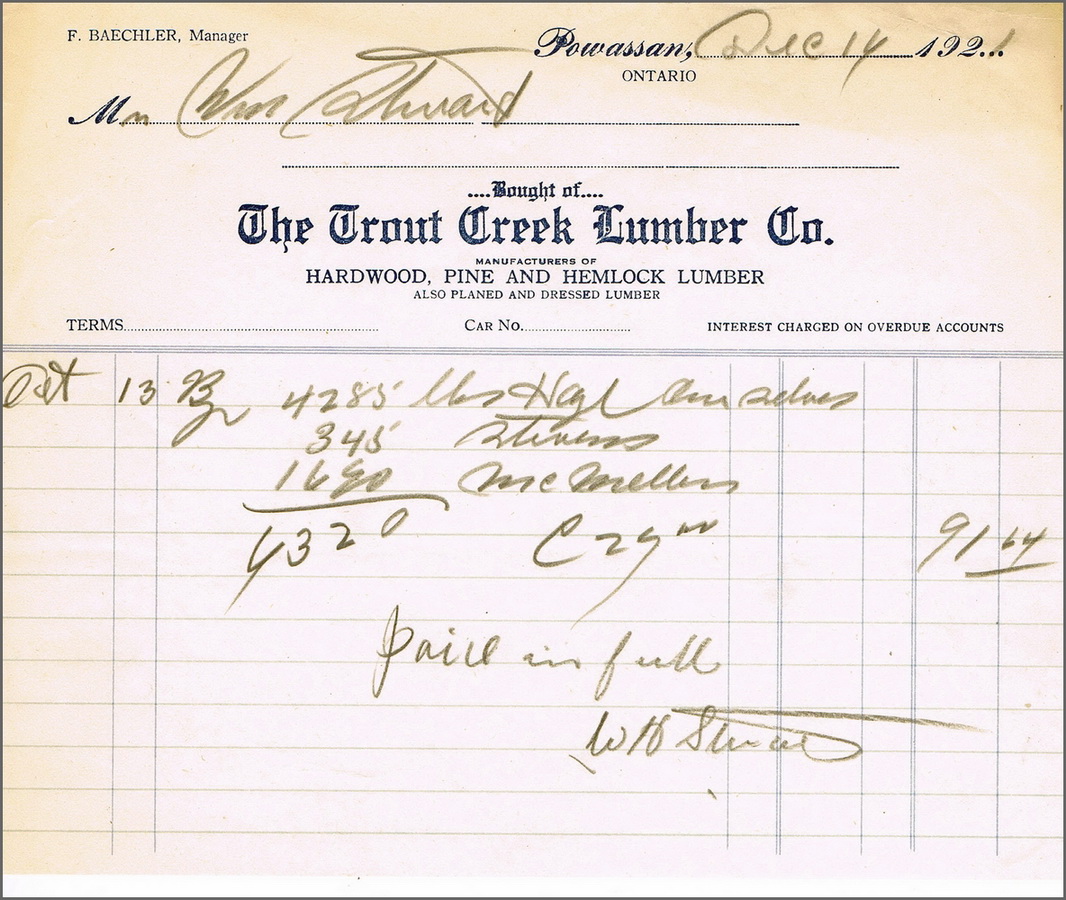 F. BAECHLER, Manager
Powassan, Dec 14 1921
ONTARIO
Mr Wm Stewart
....Bought of....
The Trout Creek Lumber Co.
MANUFACTURERS OF
HARDWOOD, PINE AND HEMLOCK LUMBER
ALSO PLANED AND DRESSED LUMBER
TERMS
CAR NO.
INTEREST CHARGED ON OVERDUE ACCOUNTS
Oct 13 By 4285 lbs Hay Ourselves
345 Stivens
1690
6320 C 29 00 91 64
paid in full
W H Stewart